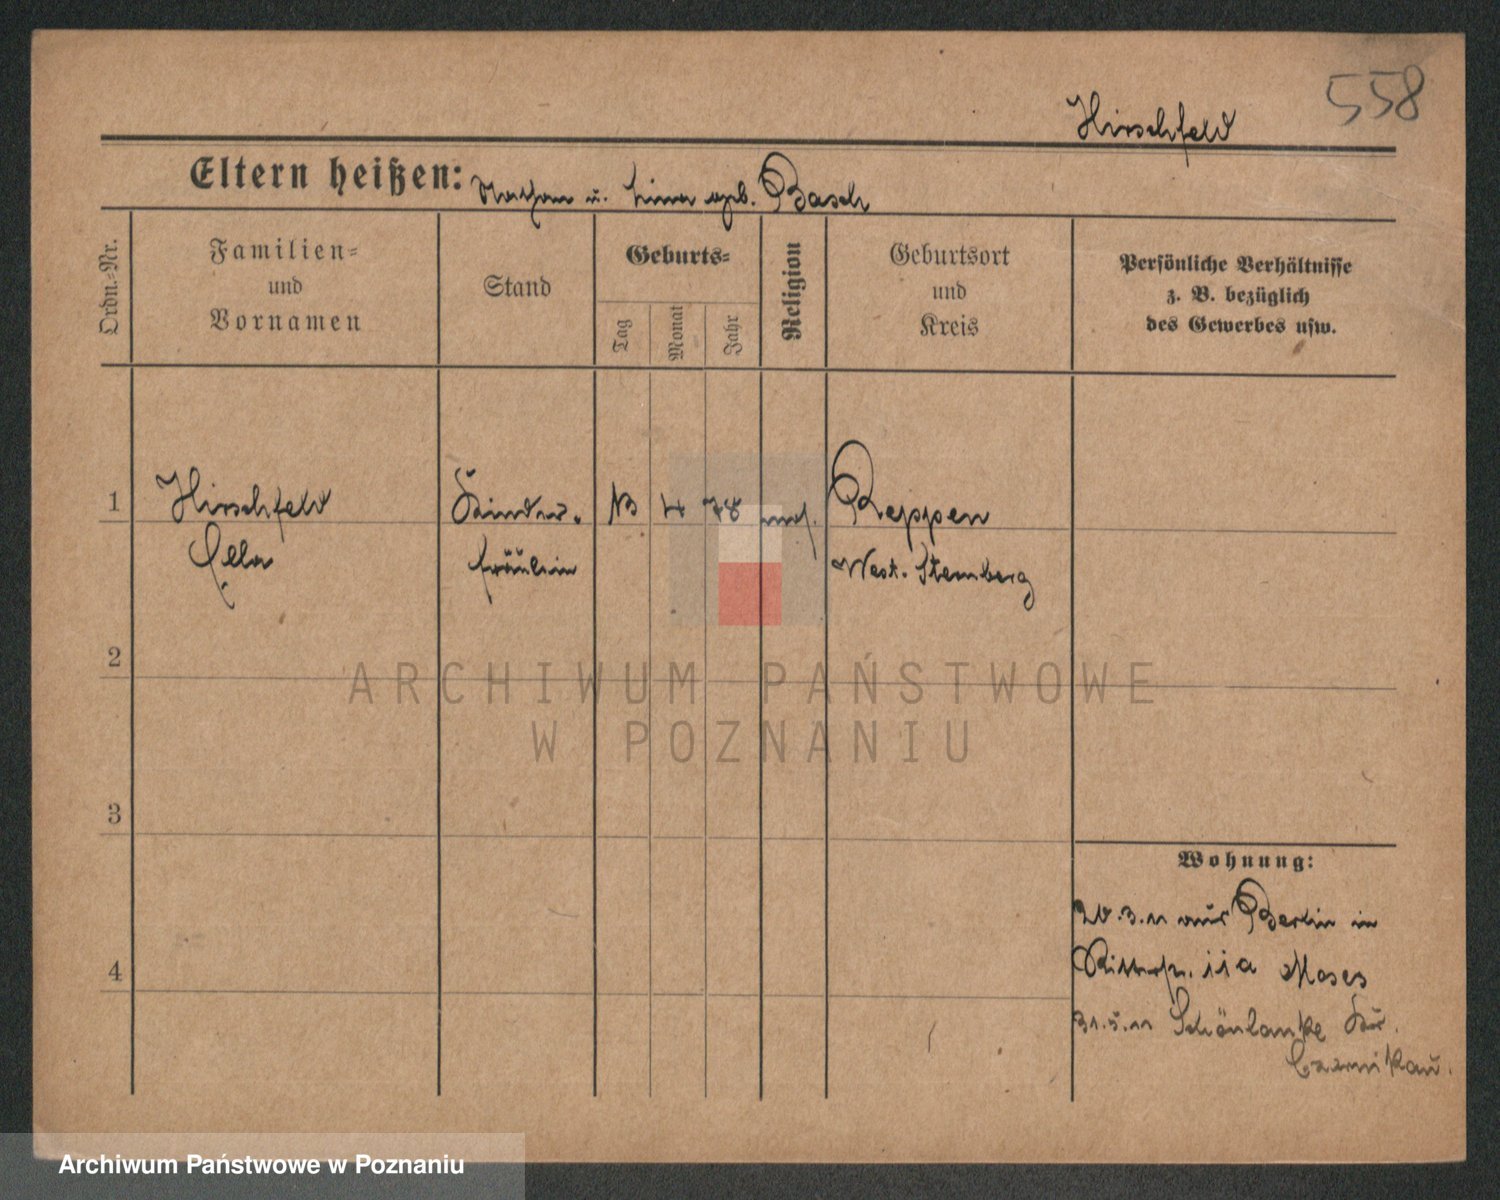 558
Hirschfeld
Eltern heißen: Nathan u. Lina geb. Basch
Ordn.-Nr.
Familien-
und
Vornamen
Stand
Geburts-
Tag
Monat
Jahr
Religion
Geburtsort
und
Kreis
Persönliche Verhältnisse
z. B. bezüglich
des Gewerbes usw.
1
Hirschfeld
Ella
Kinder-
fräulein
13
4
78
mos.
Reppen
West. Sternberg
2
3
4
Wohnung:
20.3.11 aus Berlin in
Ritterstr. 11a Moses
31.5.11 Schönlanke Kr.
Czarnikau.
ARCHIWUM PAŃSTWOWE
W POZNANIU
Archiwum Państwowe w Poznaniu